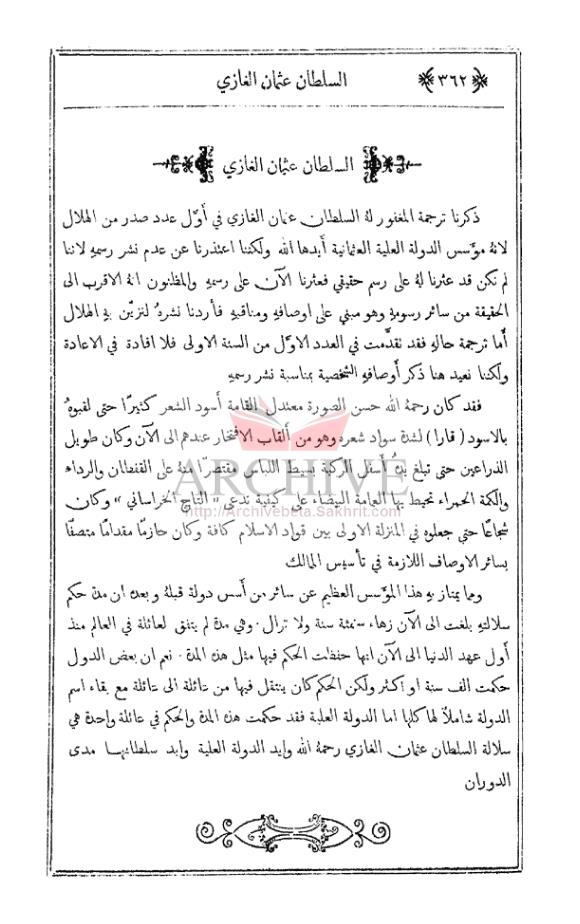 ﴿٣٦٢﴾ السلطان عثمان الغازي
السلطان عثمان الغازي
ذكرنا ترجمة المغفور لهُ السلطان عثمان الغازي في أوَّل عدد صدر من الهلال
لانهُ مؤَسس الدولة العلية العثمانية أيدها الله ولكننا اعتذرنا عن عدم نشر رسمهِ لاننا
لم نكن قد عثرنا لهُ على رسم حقيقي فعثرنا الآن على رسمهِ والمظنون انهُ الاقرب الى
الحقيقة من سائر رسومهِ وهو مبني على اوصافهِ ومناقبهِ فأردنا نشرهُ لتزيّن بهِ الهلال
أما ترجمة حالهِ فقد تقدَّمت في العدد الاوَّل من السنة الاولى فلا افادة في الاعادة
ولكننا نعيد هنا ذكر أوصافهِ الشخصية بمناسبة نشر رسمهِ
فقد كان رحمهُ الله حسن الصورة معتدل القامة أسود الشعر كثيرًا حتى لقبوهُ
بالاسود (قارا) لشدة سواد شعره وهو من ألقاب الافتخار عندهم الى الآن وكان طويل
الذراعين حتى تبلغ يدهُ أسفل الركبة بسيط اللباس مقتصرًا منهُ على القفطان والرداء
والكمة الحمراء تحيط بها العمامة البيضاء على كيفية تدعى «التاج الخراساني» وكان
شجاعًا حتى جعلوه في المنزلة الاولى بين قواد الاسلام كافة وكان حازمًا مقدامًا متصفًا
بسائر الاوصاف اللازمة في تأسيس الممالك
ومما يمتاز بهِ هذا المؤَسس العظيم عن سائر من أسس دولة قبلهُ وبعدهُ ان مدة حكم
سلالتهِ بلغت الى الآن زهاء ستمئة سنة ولا تزال. وهي مدة لم يتفق لعائلة في العالم منذ
أول عهد الدنيا الى الآن انها حفظت الحكم فيها مثل هذه المدة. نعم ان بعض الدول
حكمت الف سنة او أكثر ولكن الحكم كان ينتقل فيها من عائلة الى عائلة مع بقاء اسم
الدولة شاملاً لها كلها اما الدولة العلية فقد حكمت هذه المدة والحكم في عائلة واحدة هي
سلالة السلطان عثمان الغازي رحمهُ الله وايد الدولة العلية وايد سلطانها مدى
الدوران
ARCHIVE
http://Archivebeta.Sakhrit.com